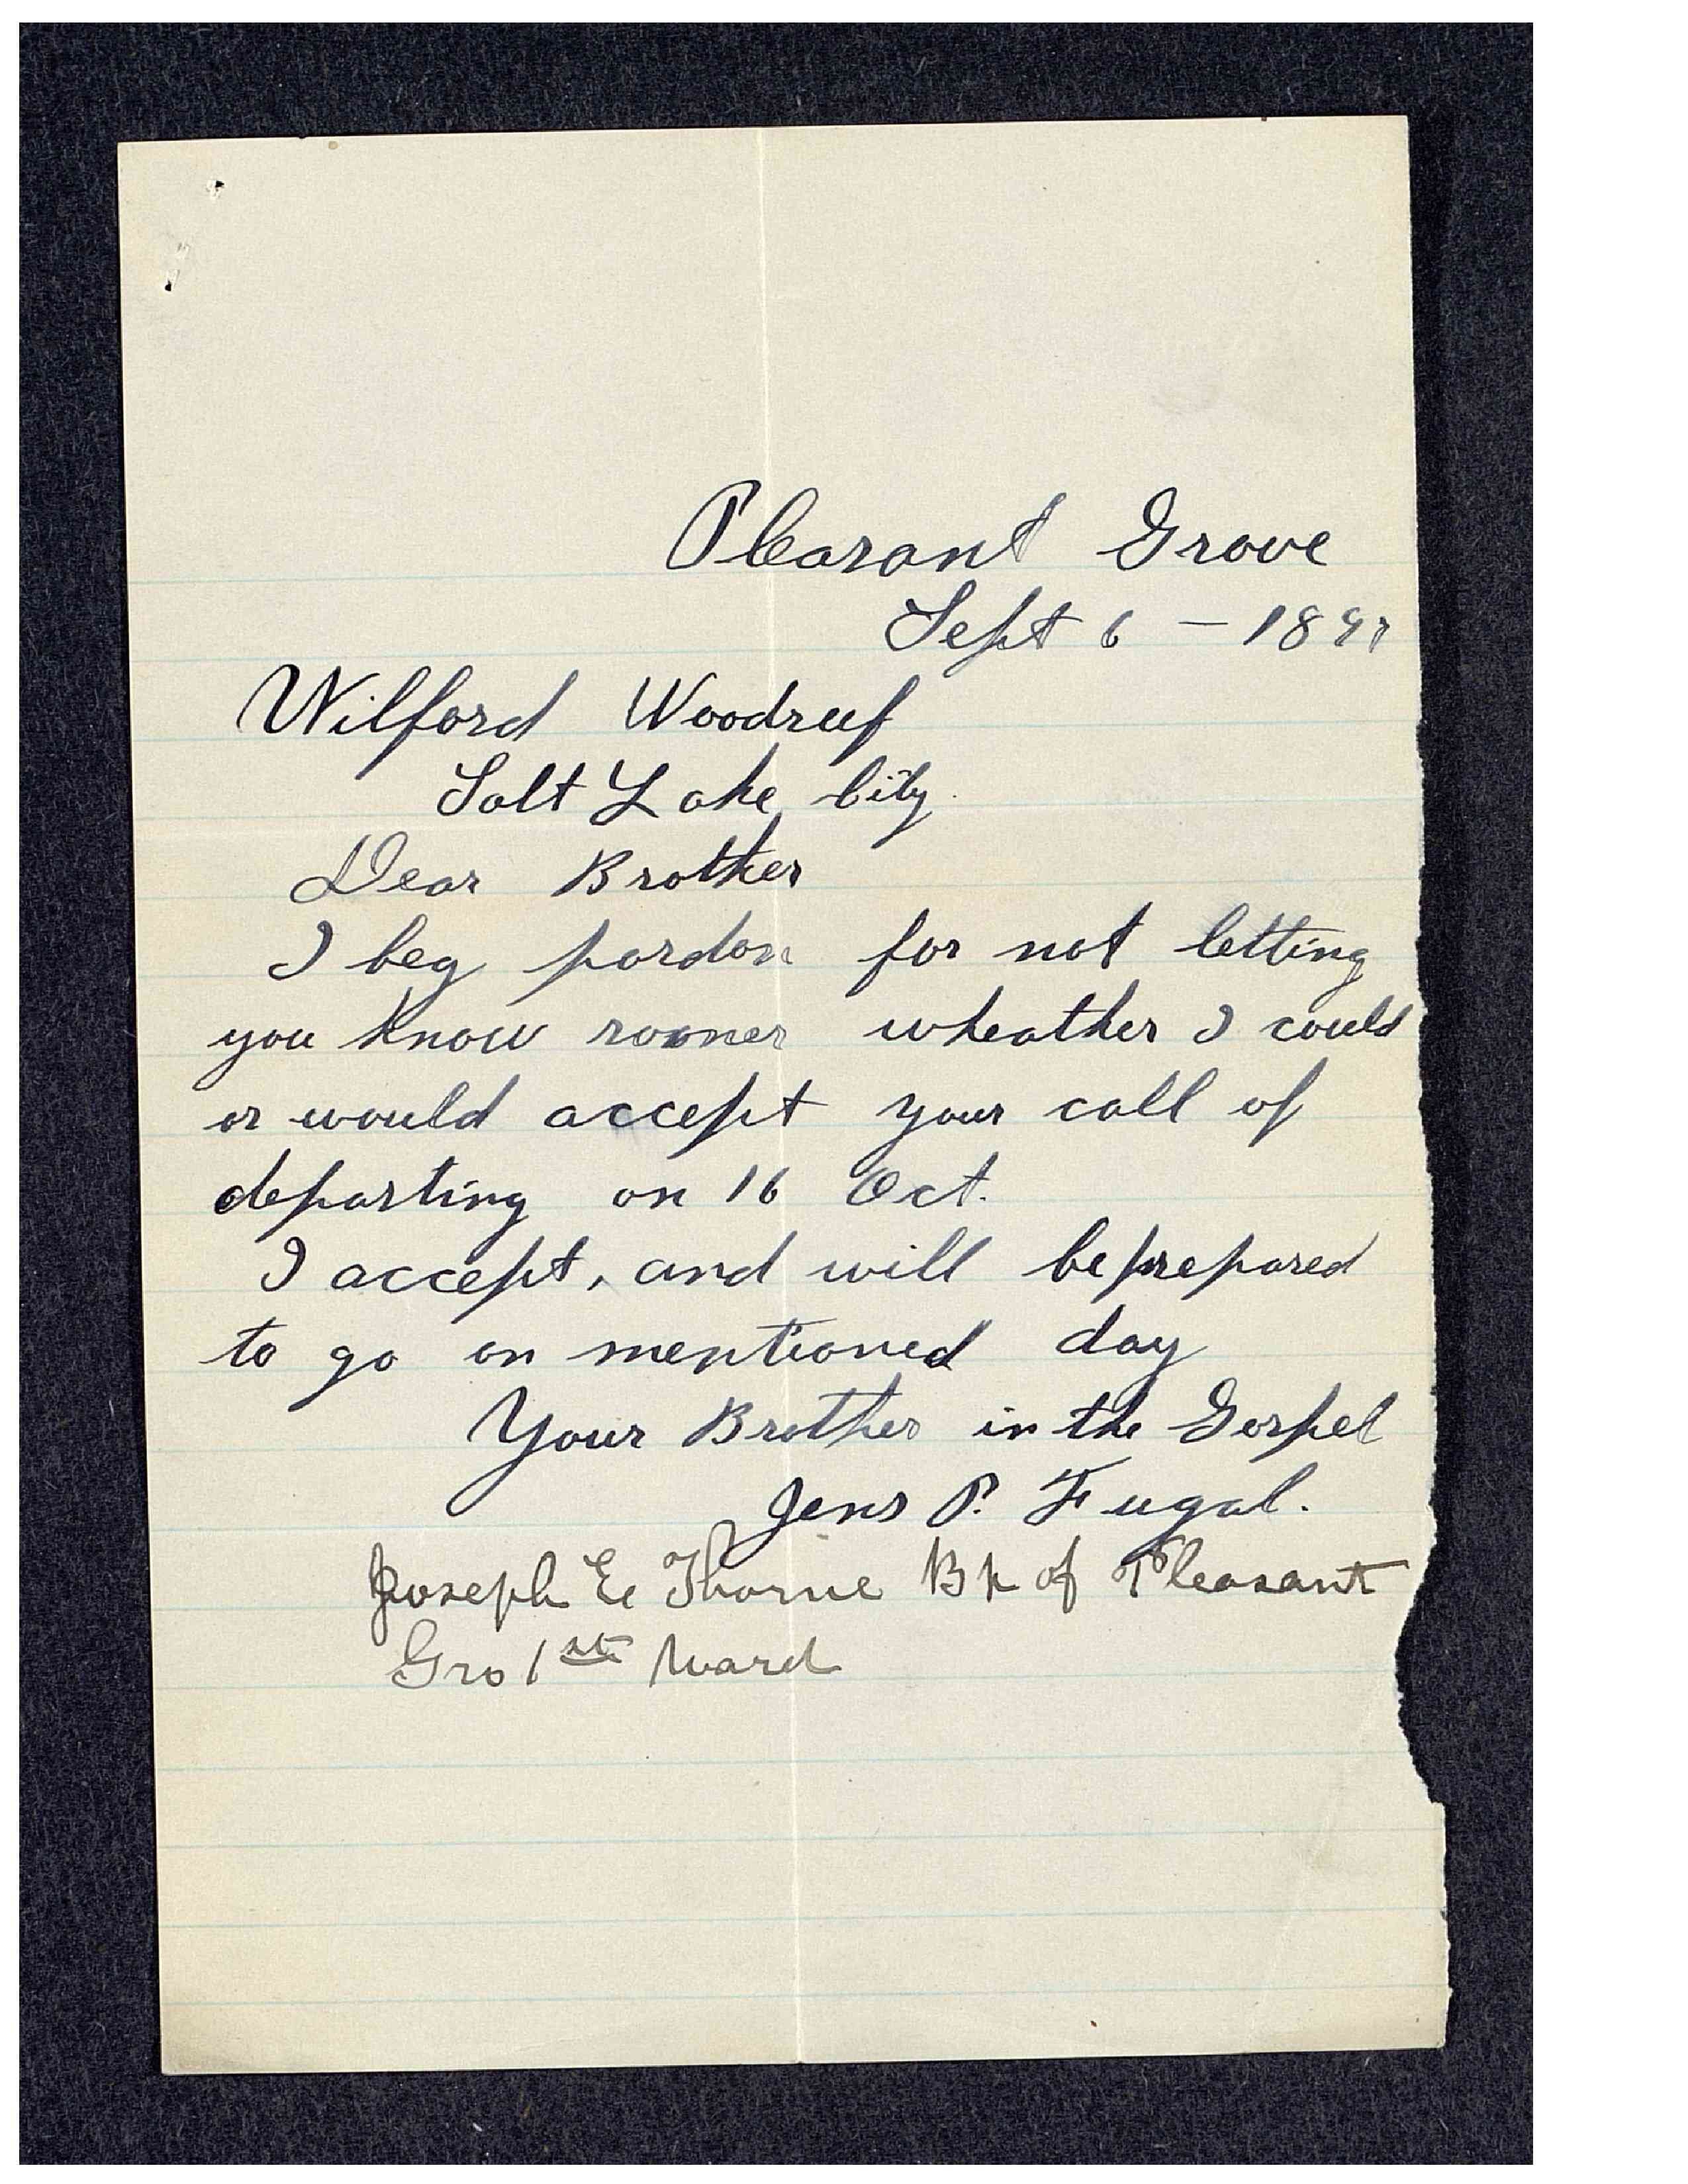 Pleasant Grove
Sept 6 – 1897
Wilford Woodruf
Salt Lake City
Dear Brother
I beg pardon for not letting
you know sooner wheather I could
or would accept your call of
departing on 16 Oct.
I accept, and will be prepared
to go on mentioned day
Your Brother in the Gospel
Jens P. Fugal.
Joseph E Thorne Bp of Pleasant
Gro 1st Ward